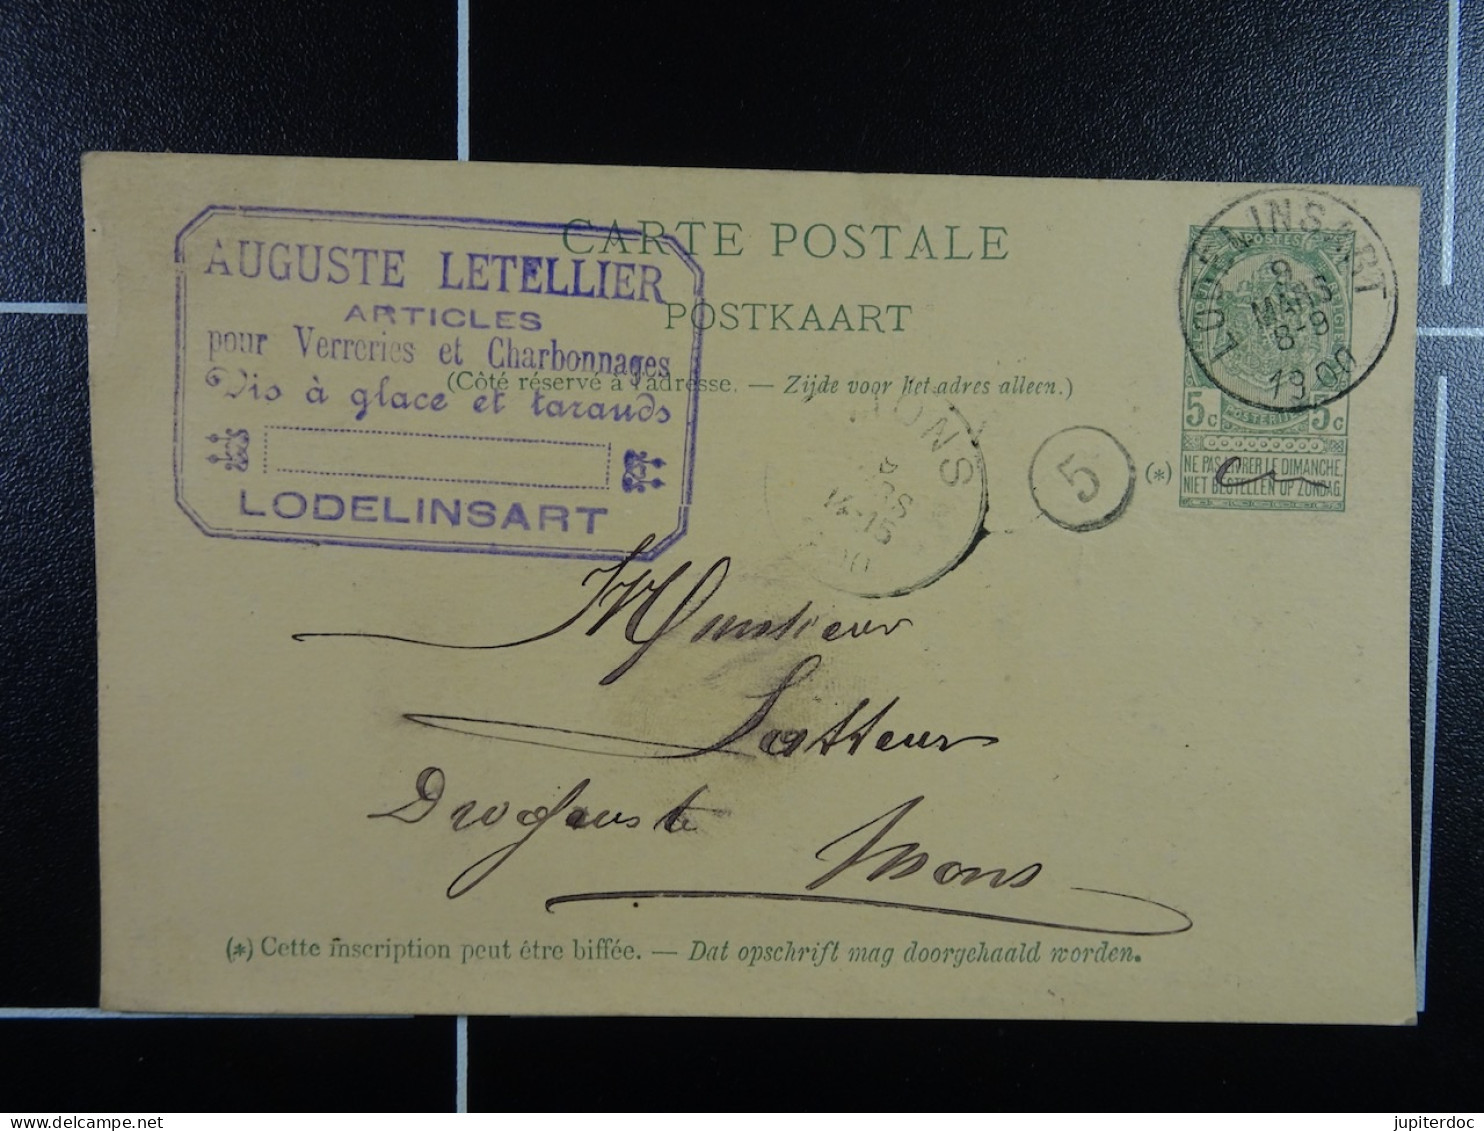 CARTE POSTALE
POSTKAART
(Côté réservé à l'adresse. — Zijde voor het adres alleen.)
AUGUSTE LETELLIER
ARTICLES
pour Verreries et Charbonnages
Vis à glace et tarauds
LODELINSART
LODELINSART
9
MARS
8-9
1900
5c 5c
(*) NE PAS LIVRER LE DIMANCHE.
NIET BESTELLEN OP ZONDAG.
MONS
14-15
5
Monsieur
Droguiste
Mons
(*) Cette inscription peut être biffée. — Dat opschrift mag doorgehaald worden.
jupiterdoc